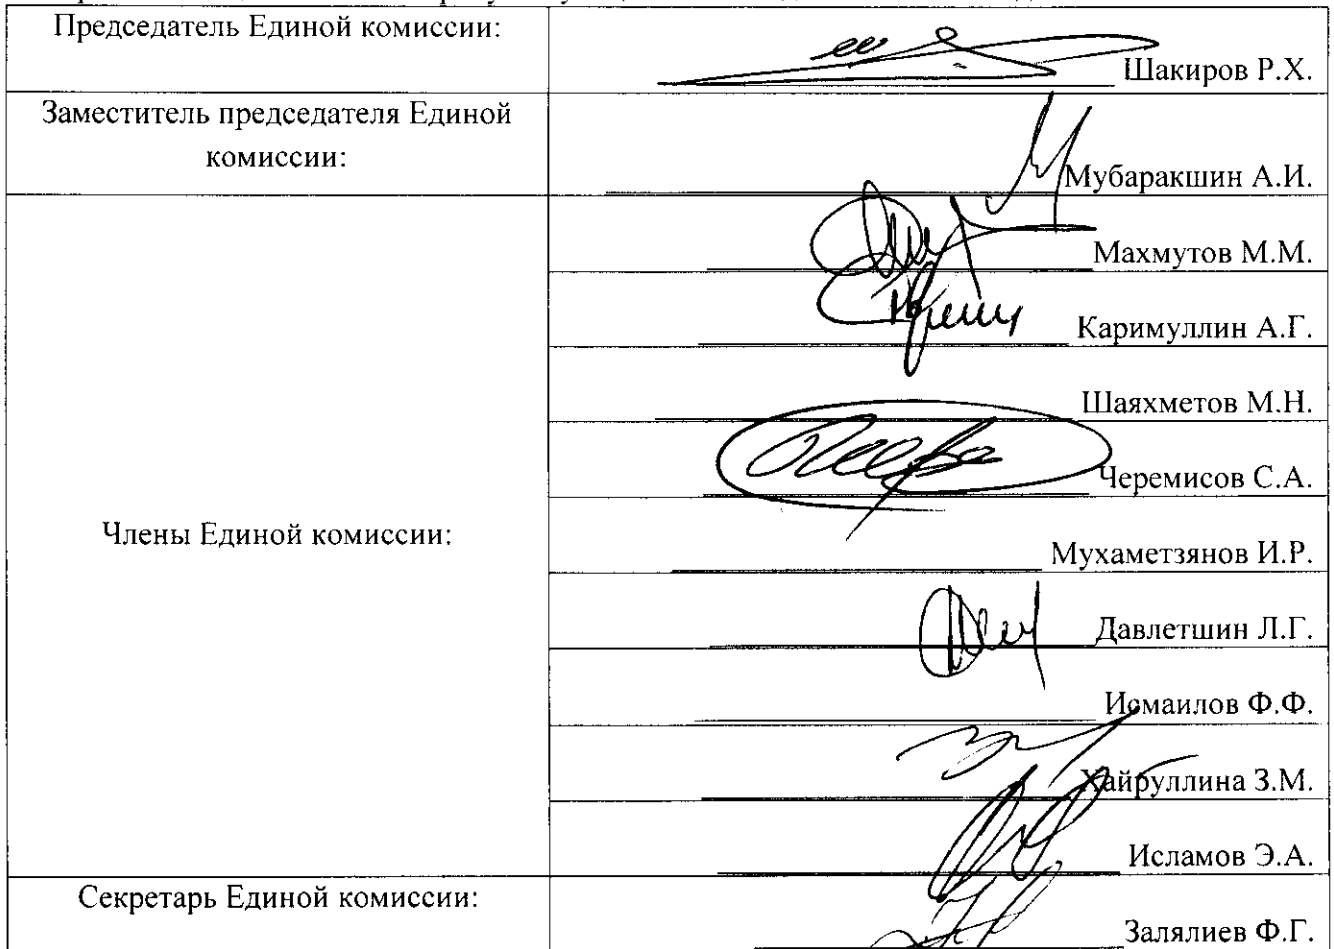 Председатель Единой комиссии:
Шакиров Р.Х.
Заместитель председателя Единой
комиссии:
Мубаракшин А.И.
Члены Единой комиссии:
Махмутов М.М.
Каримуллин А.Г.
Шаяхметов М.Н.
Черемисов С.А.
Мухаметзянов И.Р.
Давлетшин Л.Г.
Исмаилов Ф.Ф.
Хайруллина З.М.
Исламов Э.А.
Секретарь Единой комиссии:
Залялиев Ф.Г.